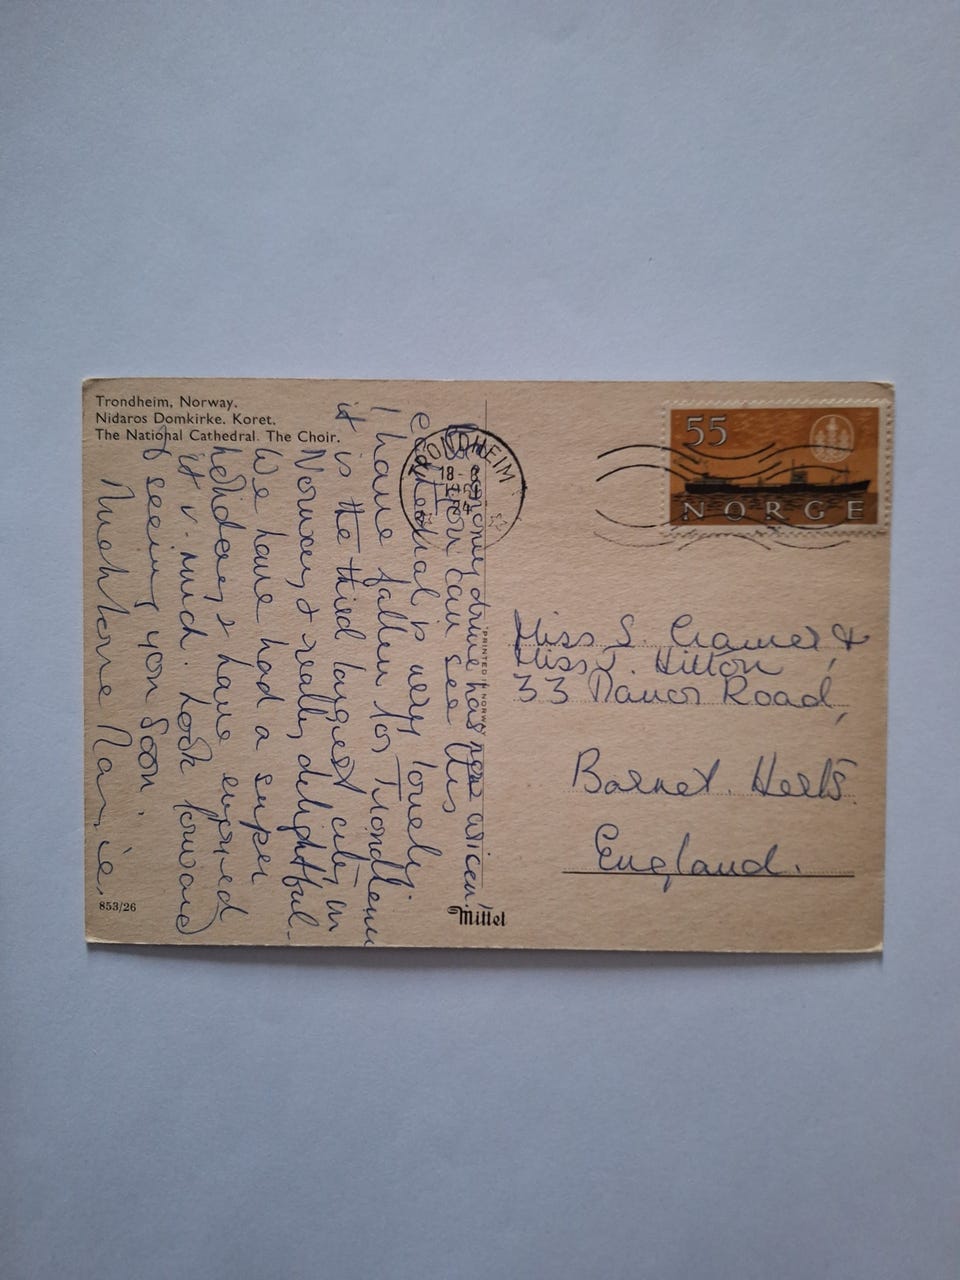 Trondheim, Norway.
Nidaros Domkirke. Koret.
The National Cathedral. The Choir.
drive has
You can see this
cathedral is very lovely.
I have fallen for Trondheim
it is the third largest city in
Norway & really delightful.
We have had a super
holiday & have enjoyed
it v. much. Look forward
to seeing you soon.
Much love
TRONDHEIM
18-
55
NORGE
Miss S. Cramer &
Miss J. Hilton,
33 Manor Road,
Barnet. Herts.
England.
PRINTED IN NORWAY
853/26
Mittet